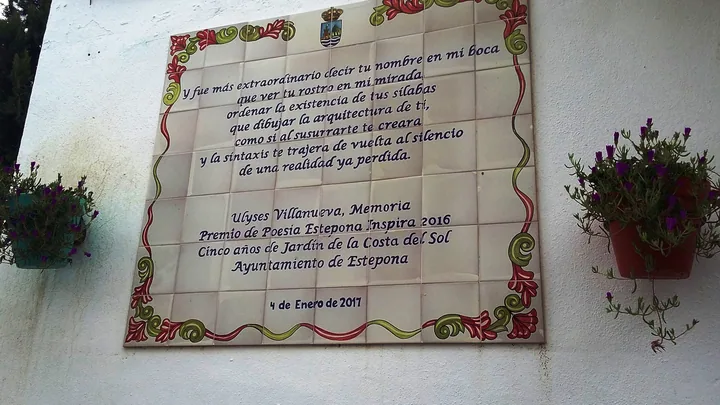 Y fue más extraordinario decir tu nombre en mi boca
que ver tu rostro en mi mirada
ordenar la existencia de tus sílabas
que dibujar la arquitectura de ti,
como si al susurrarte te creara
y la sintaxis te trajera de vuelta al silencio
de una realidad ya perdida.
Ulyses Villanueva, Memoria
Premio de Poesía Estepona Inspira 2016
Cinco años de Jardín de la Costa del Sol
Ayuntamiento de Estepona
4 de Enero de 2017